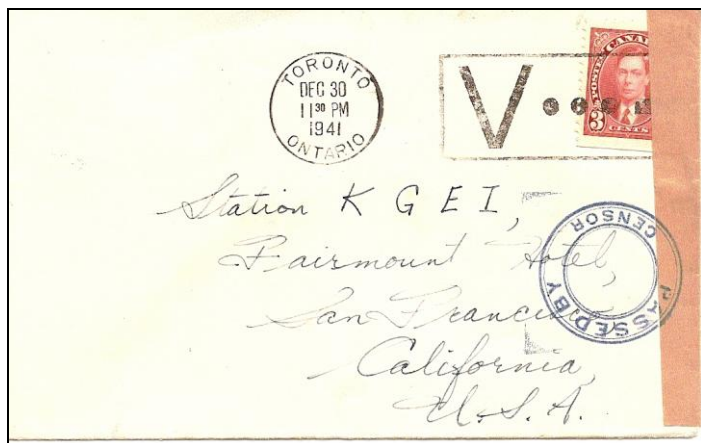 TORONTO
DEC 30
11 30 PM
1941
ONTARIO
V
POSTES CANADA
3
CENTS
Station K G E I,
Fairmount Hotel,
San Francisco
California,
U.S.A.
PASSED BY
CENSOR